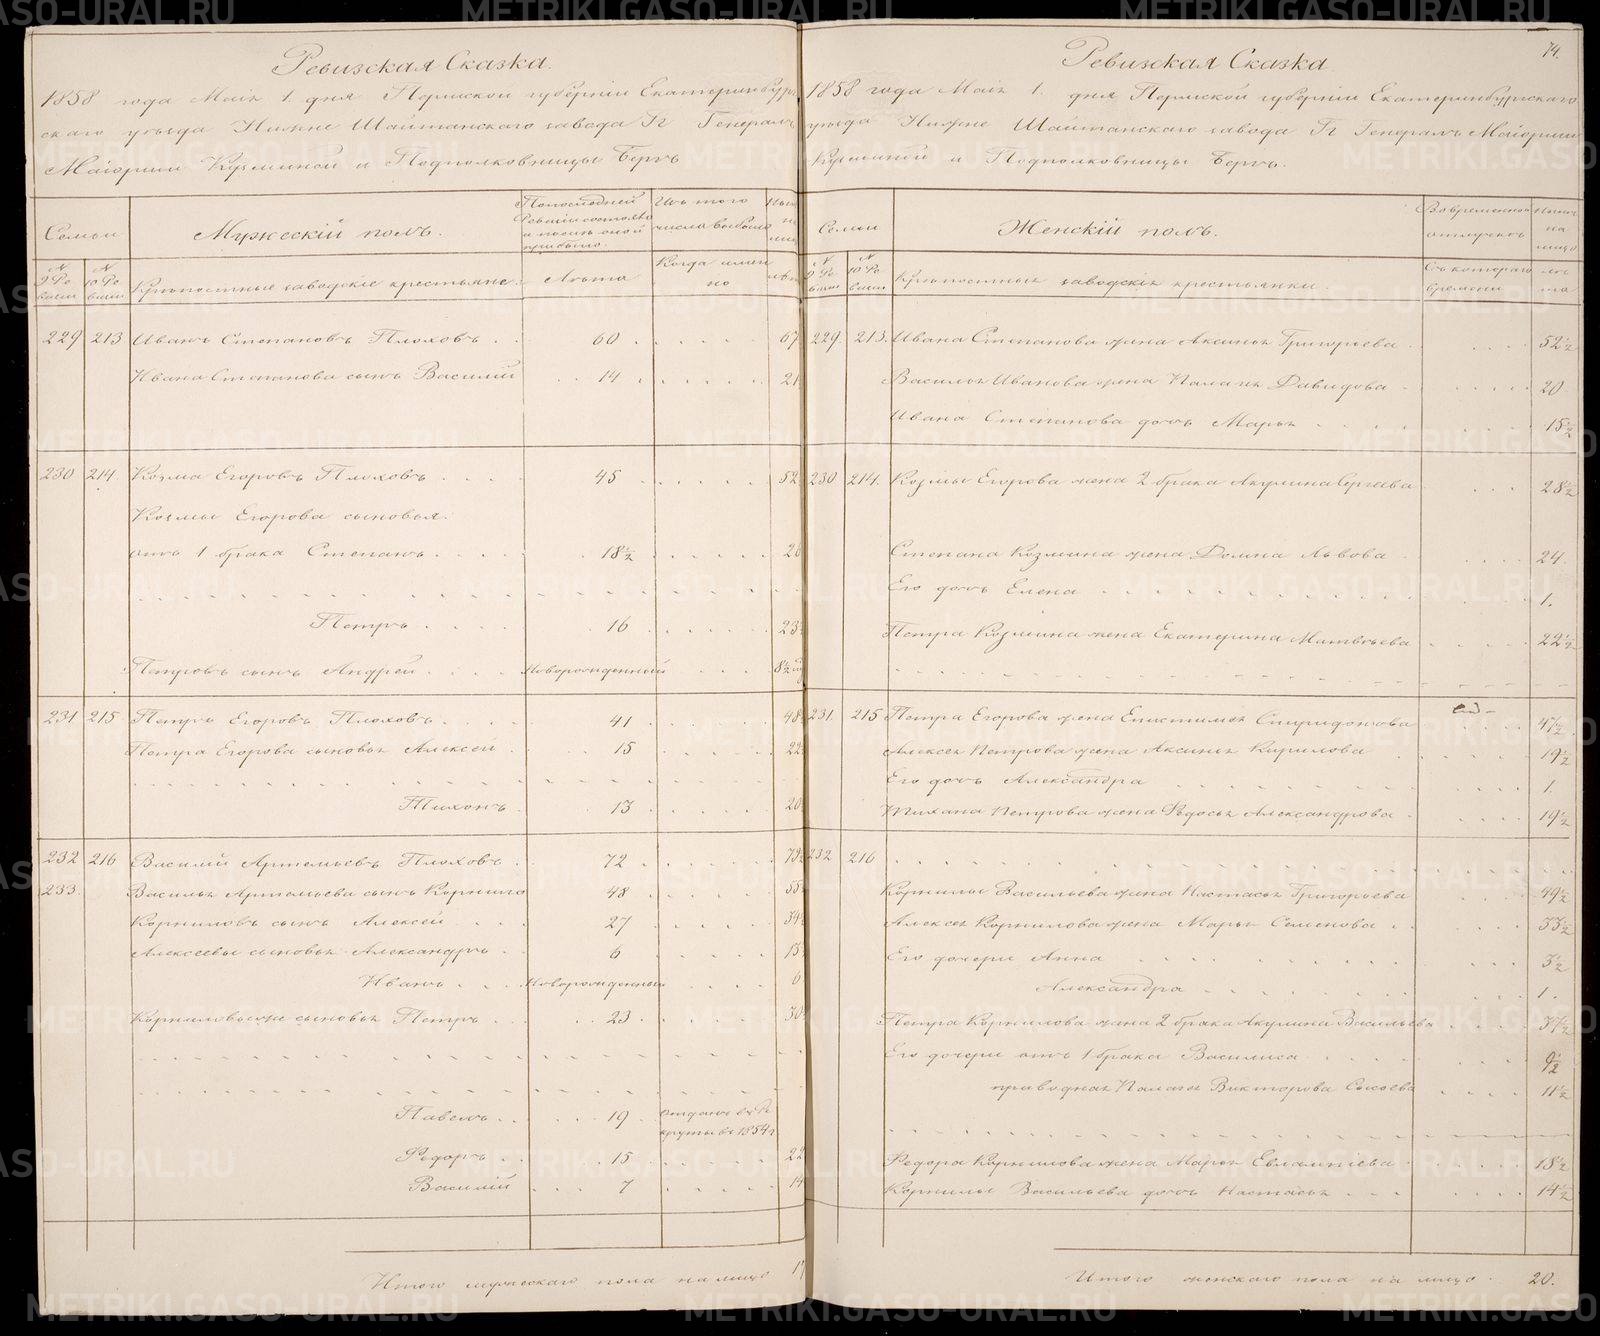 Ревизская Сказка.
1858 года Маія 1. дня Пермской губерніи Екатеринбург-
скаго уѣзда Нижне Шайтанскаго завода Гг Генералъ
Маіорши Кузминой и Подполковницы Бергъ
Семьи
Мужескій полъ.
По последней Ревизіи состояло и после оной прибыло.
Изъ того числа выбыло
Ныне на лицо
№ 9 Ре-визіи
№ 10 Ре-визіи
Крѣпостные заводскіе крестьяне:
Лѣта
Когда имен но
лѣт
229 213 Иванъ Степановъ Плоховъ . . 60 . . . . . 67
Ивана Степанова сынъ Василій . . 14 . . . . . 21
230 214. Козма Егоровъ Плоховъ . . . . 45 . . . . . 52
Козмы Егорова сыновья:
отъ 1 брака Степанъ . . . . 18½ . . . . . 26
Петръ . . . . 16 . . . . . 23½
Петровъ сынъ Андрей . . . . Новорожденный . . . 8½
231 215 Петръ Егоровъ Плоховъ . . . . 41 . . . . . 48
Петра Егорова сыновья Алексей . . 15 . . . . . 22
Тихонъ . . 13 . . . . . 20
232 216 Василій Артемьевъ Плоховъ . . 72 . . . . . 79½
233. Василья Артемьева сынъ Корнило 48 . . . . . 55
Корниловъ сынъ Алексей . . . 27 . . . . . 34
Алексеевы сыновья Александръ . . 6 . . . . . 13
Иванъ . . . Новорожденный . . . 6
Корниловы же сыновья Петръ . . . 23 . . . . . 30
Павелъ . . . 19 отданъ въ Ре круты въ 1854 г
Федоръ . . 15 . . . . . 22
Василій . . . 7 . . . . . 14
Итого мужескаго пола на лицо 17
74.
Ревизская Сказка
1858 года Маія 1. дня Пермской губерніи Екатеринбургскаго
уѣзда Нижне Шайтанскаго завода Гг Генералъ Маіорши
Кузминой и Подполковницы Бергъ.
Семьи
Женскій полъ.
Во временной отлучкѣ
Ныне на лицо
№ 9 Ре-визіи
№ 10 Ре-визіи
Крѣпостныя заводскія крестьянки.
Съ котораго времени
лѣ та
229. 213. Ивана Степанова жена Аксинья Григорьева . . . . 52½
Василья Иванова жена Палагія Давидова . . . . . 20
Ивана Степанова дочь Марья . . . . . . 15½
230 214. Козмы Егорова жена 2 брака Акулина Сергеева . . . 28½
Степана Козмина жена Домна Львова . . . . . 24.
Его дочь Елена . . . . . . . 1.
Петра Козмина жена Екатерина Матвѣева . . . . 22½
231. 215 Петра Егорова жена Епистимья Спиридонова . . . . 47½
Алексея Петрова жена Аксинья Кирилова . . . . 19½
Его дочь Александра . . . . . . 1.
Тихана Петрова жена Федосья Александрова . . . . 19½
232 216 . . . . . . . . . . .
Корнилы Васильева жена Настасья Григорьева . . . . 49½
Алексея Корнилова жена Марья Семенова . . . . . 33½
Его дочери Анна . . . . . . . 3½
Александра . . . . . . . 1.
Петра Корнилова жена 2 брака Акулина Васильева . . . . 37½
Его дочери отъ 1 брака Василиса . . . . . . 9½
приводная Палагія Викторова Сысоева . . . . 11½
Федора Корнилова жена Марья Евлампіева . . . . . 18½
Корнилы Васильева дочь Настасья . . . . . 14½
Итого женскаго пола на лицо . 20.
METRIKI.GASO-URAL.RU